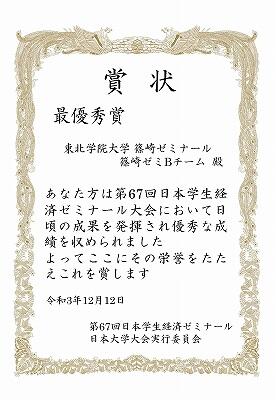 賞状
最優秀賞
東北学院大学 篠崎ゼミナール
篠崎ゼミBチーム 殿
あなた方は第67回日本学生経
済ゼミナール大会において日
頃の成果を発揮され優秀な成
績を収められました
よってここにその栄誉をたた
えこれを賞します
令和3年12月12日
第67回日本学生経済ゼミナール
日本大学大会実行委員会